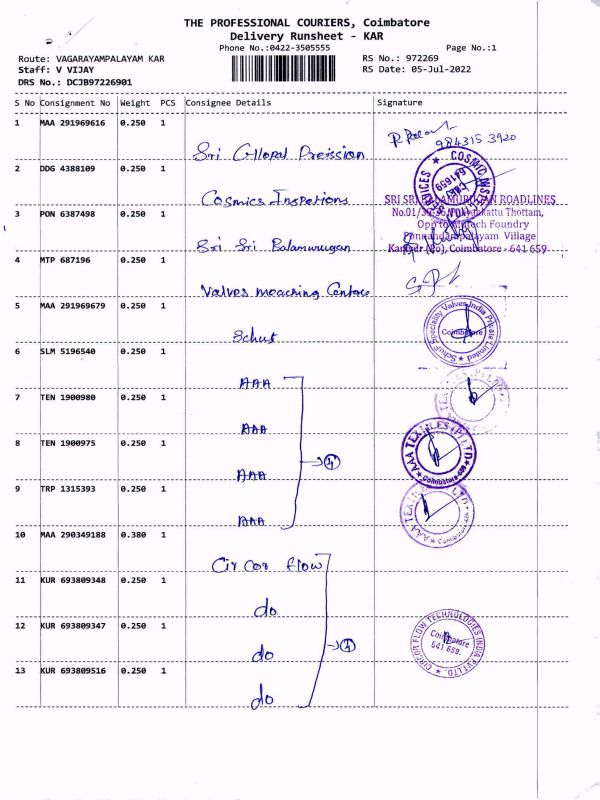 THE PROFESSIONAL COURIERS, Coimbatore
Delivery Runsheet - KAR
Phone No.:0422-3505555
Page No.:1
Route: VAGARAYAMPALAYAM KAR
RS No.: 972269
Staff: V VIJAY
RS Date: 05-Jul-2022
DRS No.: DCJB97226901
S No Consignment No Weight PCS Consignee Details Signature
1 MAA 291969616 0.250 1
984315 3920
Sri Glopal Preission
2 DDG 4388109 0.250 1
COSMIC
641659
SERVICES
Cosmics Inspetions
SRI SRI BALAMURUGAN ROADLINES
3 PON 6387498 0.250 1
No.01/
Thottam,
Foundry
Village
Sri Sri Balamurugan
Coimbatore - 641 659
4 MTP 687196 0.250 1
Valves meaching Centare
5 MAA 291969679 0.250 1
Schuf Speciality Valves India Private Limited
Coimbatore
Schuf
6 SLM 5196540 0.250 1
AAA
7 TEN 1900980 0.250 1
AAA
8 TEN 1900975 0.250 1
AAA TEXTILES (P) LTD
Coimbatore
4
AAA
9 TRP 1315393 0.250 1
AAA
10 MAA 290349188 0.380 1
Circor flow
11 KUR 693809348 0.250 1
do
12 KUR 693809347 0.250 1
CIRCOR FLOW TECHNOLOGIES INDIA PVT.LTD.
Coimbatore
641 659.
4
do
13 KUR 693809516 0.250 1
do